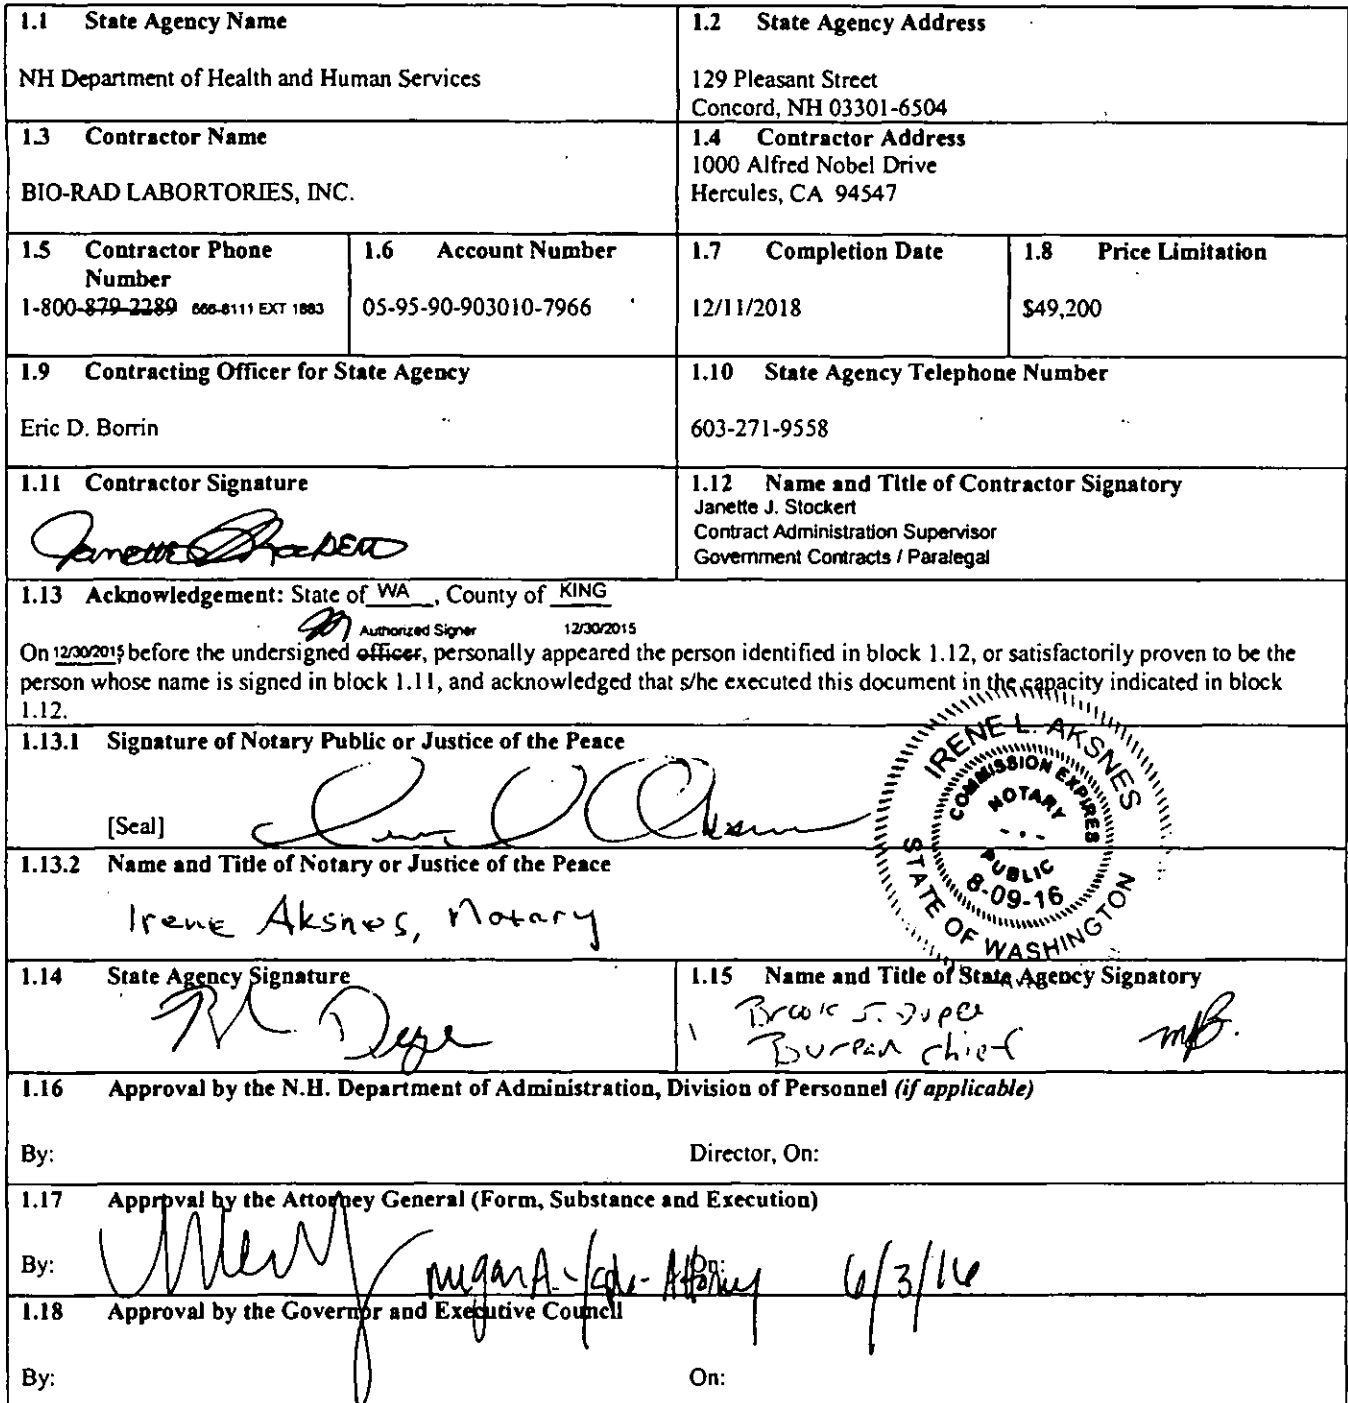 1.1 State Agency Name
NH Department of Health and Human Services
1.2 State Agency Address
129 Pleasant Street
Concord, NH 03301-6504
1.3 Contractor Name
BIO-RAD LABORTORIES, INC.
1.4 Contractor Address
1000 Alfred Nobel Drive
Hercules, CA 94547
1.5 Contractor Phone
Number
1-800-879-2289 666-8111 EXT 1883
1.6 Account Number
05-95-90-903010-7966
1.7 Completion Date
12/11/2018
1.8 Price Limitation
$49,200
1.9 Contracting Officer for State Agency
Eric D. Borrin
1.10 State Agency Telephone Number
603-271-9558
1.11 Contractor Signature
1.12 Name and Title of Contractor Signatory
Janette J. Stockert
Contract Administration Supervisor
Government Contracts / Paralegal
1.13 Acknowledgement: State of WA, County of KING
Authorized Signer 12/30/2015
On 12/30/2015 before the undersigned officer, personally appeared the person identified in block 1.12, or satisfactorily proven to be the
person whose name is signed in block 1.11, and acknowledged that s/he executed this document in the capacity indicated in block
1.12.
1.13.1 Signature of Notary Public or Justice of the Peace
[Seal]
IRENE L. AKSNES
COMMISSION EXPIRES
NOTARY
PUBLIC
8-09-16
STATE OF WASHINGTON
1.13.2 Name and Title of Notary or Justice of the Peace
Irene Aksnes, Notary
1.14 State Agency Signature
1.15 Name and Title of State Agency Signatory
Brook S. Dupee
Bureau Chief
1.16 Approval by the N.H. Department of Administration, Division of Personnel (if applicable)
By:
Director, On:
1.17 Approval by the Attorney General (Form, Substance and Execution)
By:
Megan A. Attorney
On:
6/3/16
1.18 Approval by the Governor and Executive Council
By:
On: